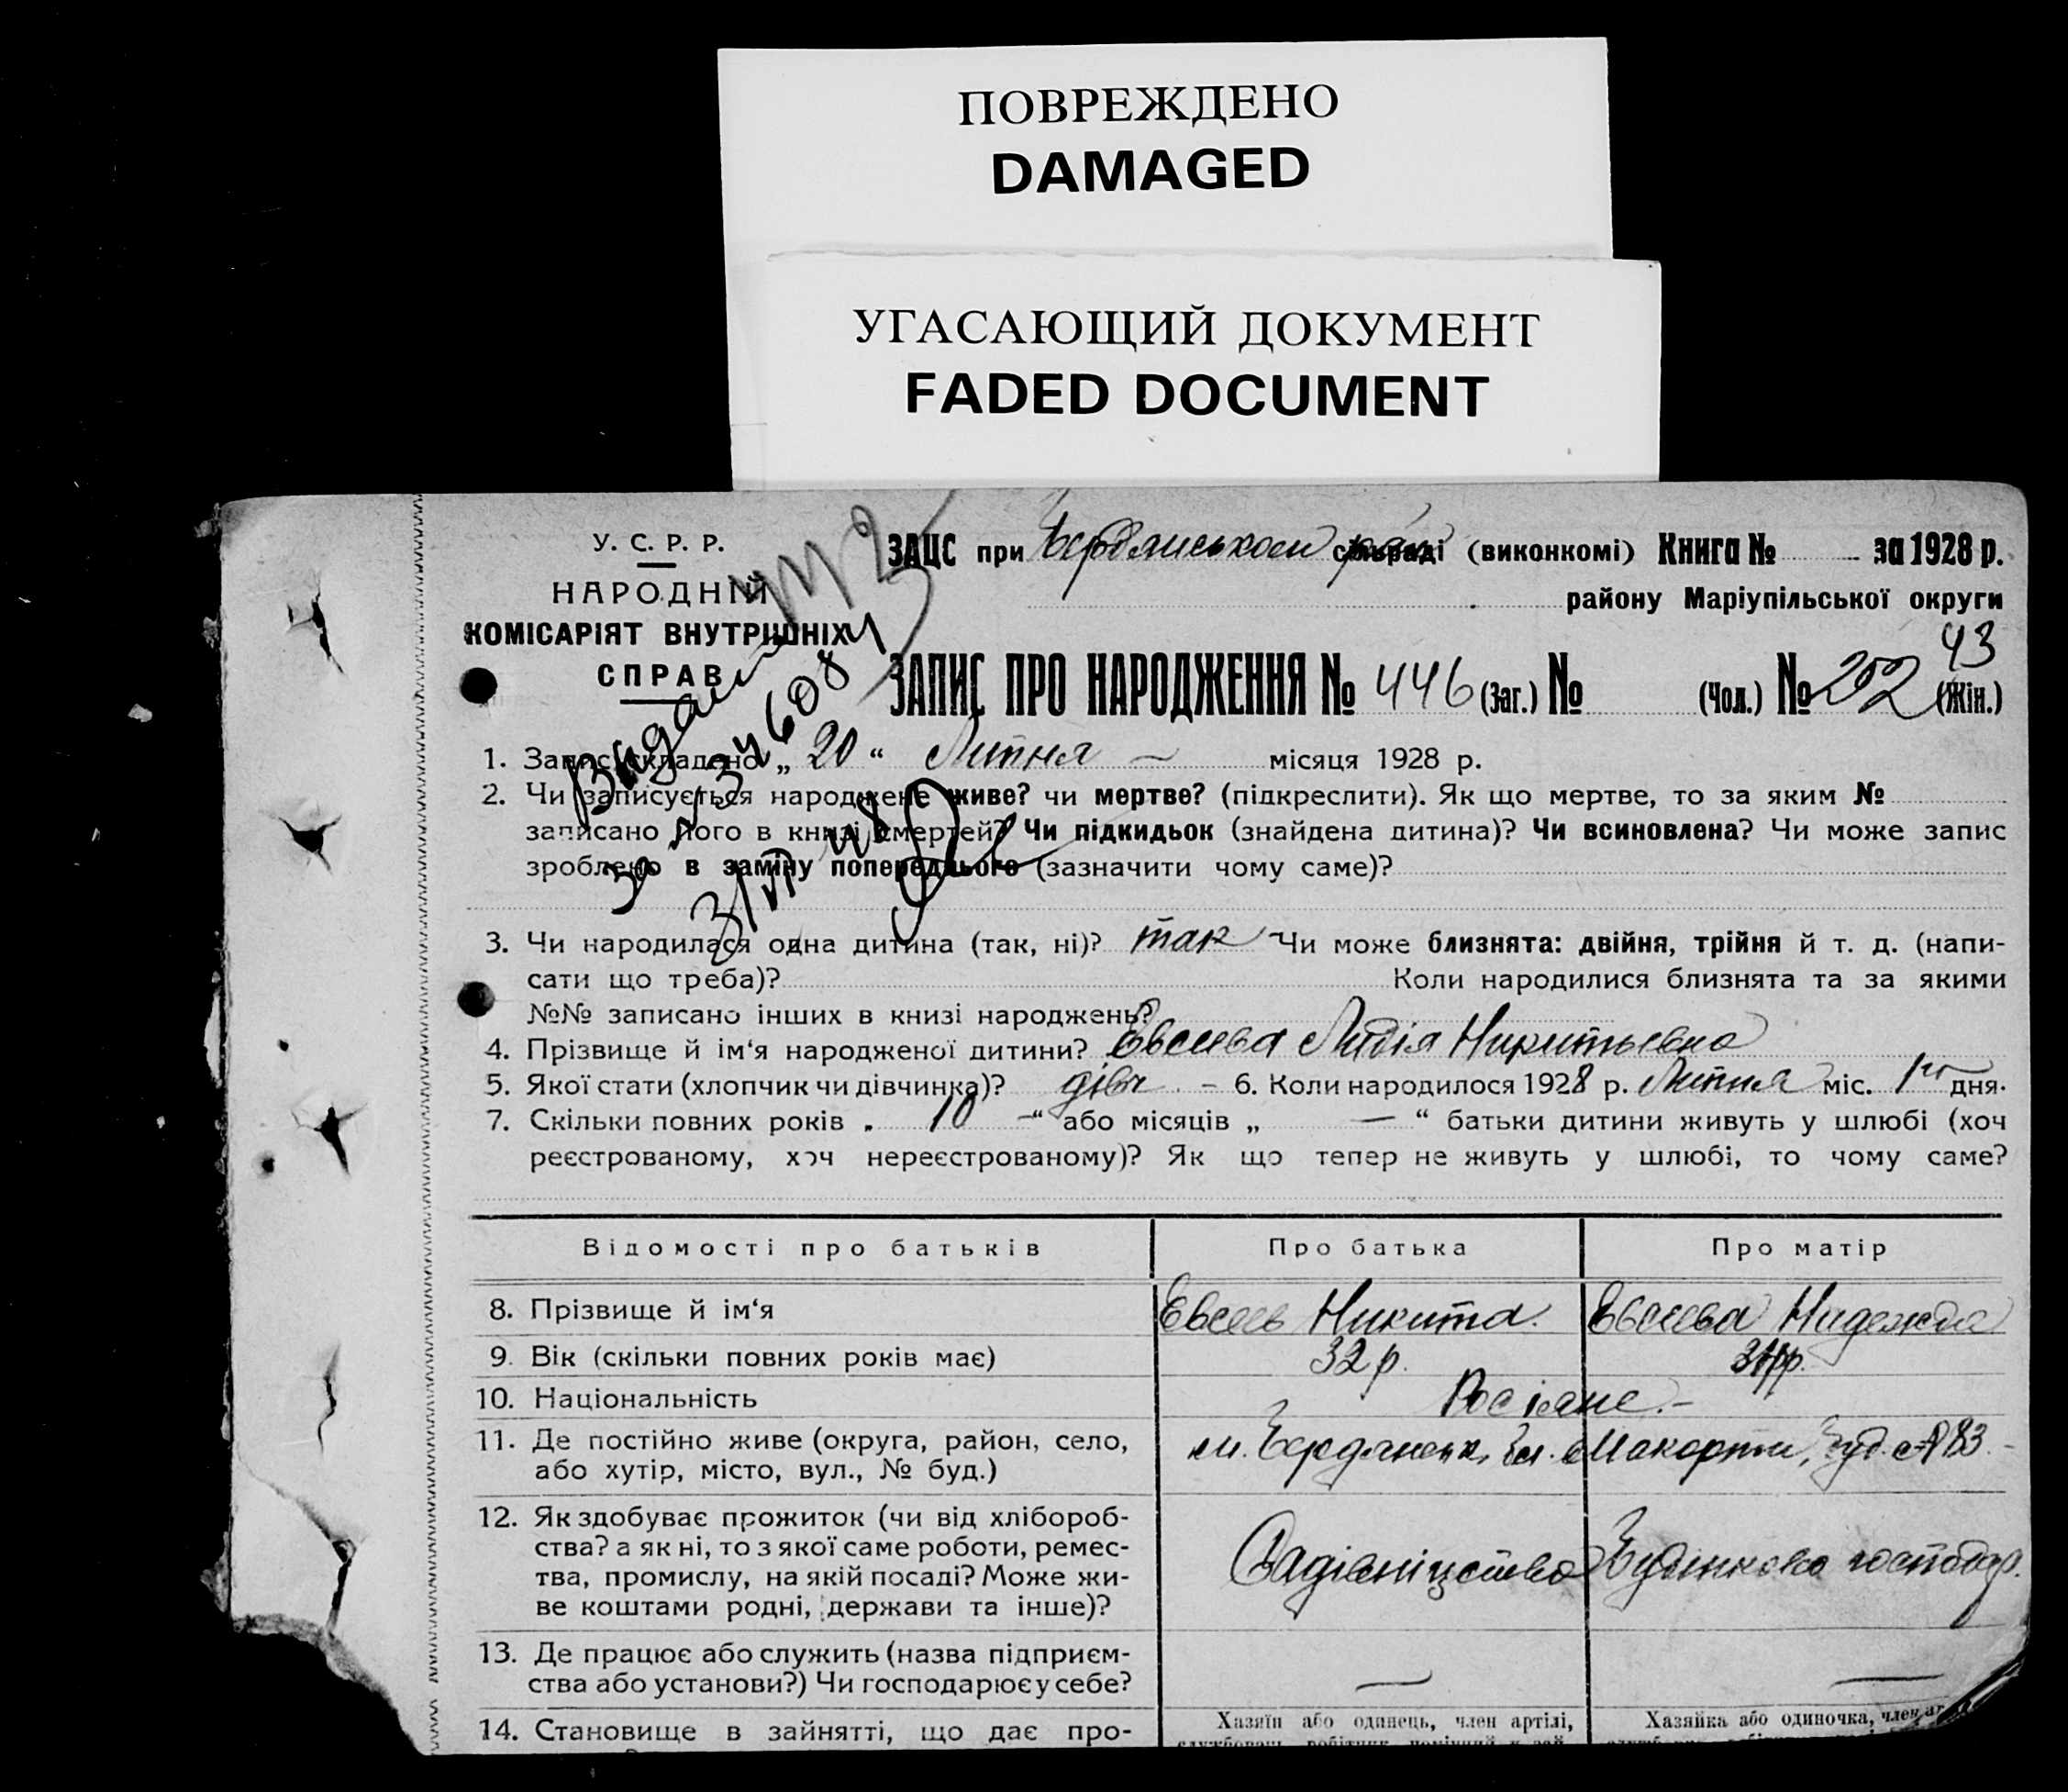 ПОВРЕЖДЕНО
DAMAGED
УГАСАЮЩИЙ ДОКУМЕНТ
FADED DOCUMENT
У. С. Р. Р.
НАРОДНІЙ
КОМІСАРІЯТ ВНУТРІШНІХ
СПРАВ
ЗАЦС при Бердянськом (виконкомі) Книга № за 1928 р.
району Маріупільської округи
43
ЗАПИС ПРО НАРОДЖЕННЯ № 446 (Заг.) № (Чол.) № 202 (Жін.)
1. Запис складено „ 20 “ Липня місяця 1928 р.
2. Чи записується народжене живе? чи мертве? (підкреслити). Як що мертве, то за яким №
записано його в книзі смертей? Чи підкидьок (знайдена дитина)? Чи всиновлена? Чи може запис
зроблено в заміну попереднього (зазначити чому саме)?
3. Чи народилася одна дитина (так, ні)? так Чи може близнята: двійня, трійня й т. д. (напи-
сати що треба)? Коли народилися близнята та за якими
№№ записано інших в книзі народжень?
4. Прізвище й ім‘я народженої дитини? Евсеева Лидія Никитьевна
5. Якої стати (хлопчик чи дівчинка)? дівч – 6. Коли народилося 1928 р. Липня міс. 1го дня.
7. Скільки повних років „ 10 –“ або місяців „ — “ батьки дитини живуть у шлюбі (хоч
реєстрованому, хоч нереєстрованому)? Як що тепер не живуть у шлюбі, то чому саме?
Відомості про батьків Про батька Про матір
8. Прізвище й ім‘я Евсеев Никита. Евсеева Надежда
9. Вік (скільки повних років має) 32 р.
10. Національність Росіяне. –
11. Де постійно живе (округа, район, село, м. Бердянськ, буд. № 83 –
або хутір, місто, вул., № буд.)
12. Як здобуває прожиток (чи від хлібороб-
ства? а як ні, то з якої саме роботи, ремес-
тва, промислу, на якій посаді? Може жи-
ве коштами родні, держави та інше)?
Садівніцство Будинкова господар.
13. Де працює або служить (назва підприєм-
ства або установи?) Чи господарює у себе? — —
14. Становище в зайнятті, що дає про- Хазяїн або одинець, член артілі, Хазяйка або одиночка, член
Видан
за № 346084
3/VII 48